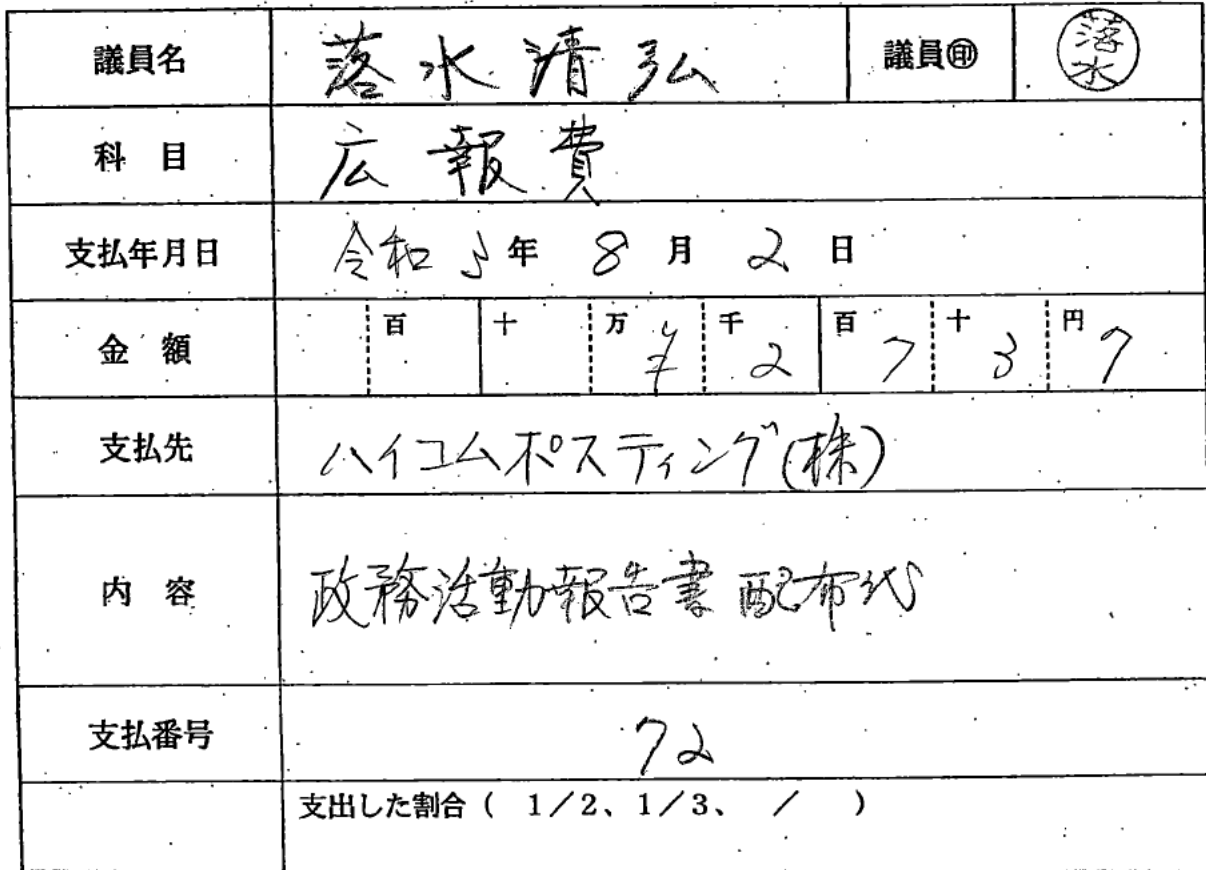 議員名 落水清弘 議員㊞ 落水
科 目 広報費
支払年月日 令和5年8月2日
金 額 百 十 万 ¥ 千 2 百 7 十 3 円 7
支払先 ハイコムポスティング(株)
内 容 政務活動報告書 配布代
支払番号 72
支出した割合 ( 1/2、1/3、 / )